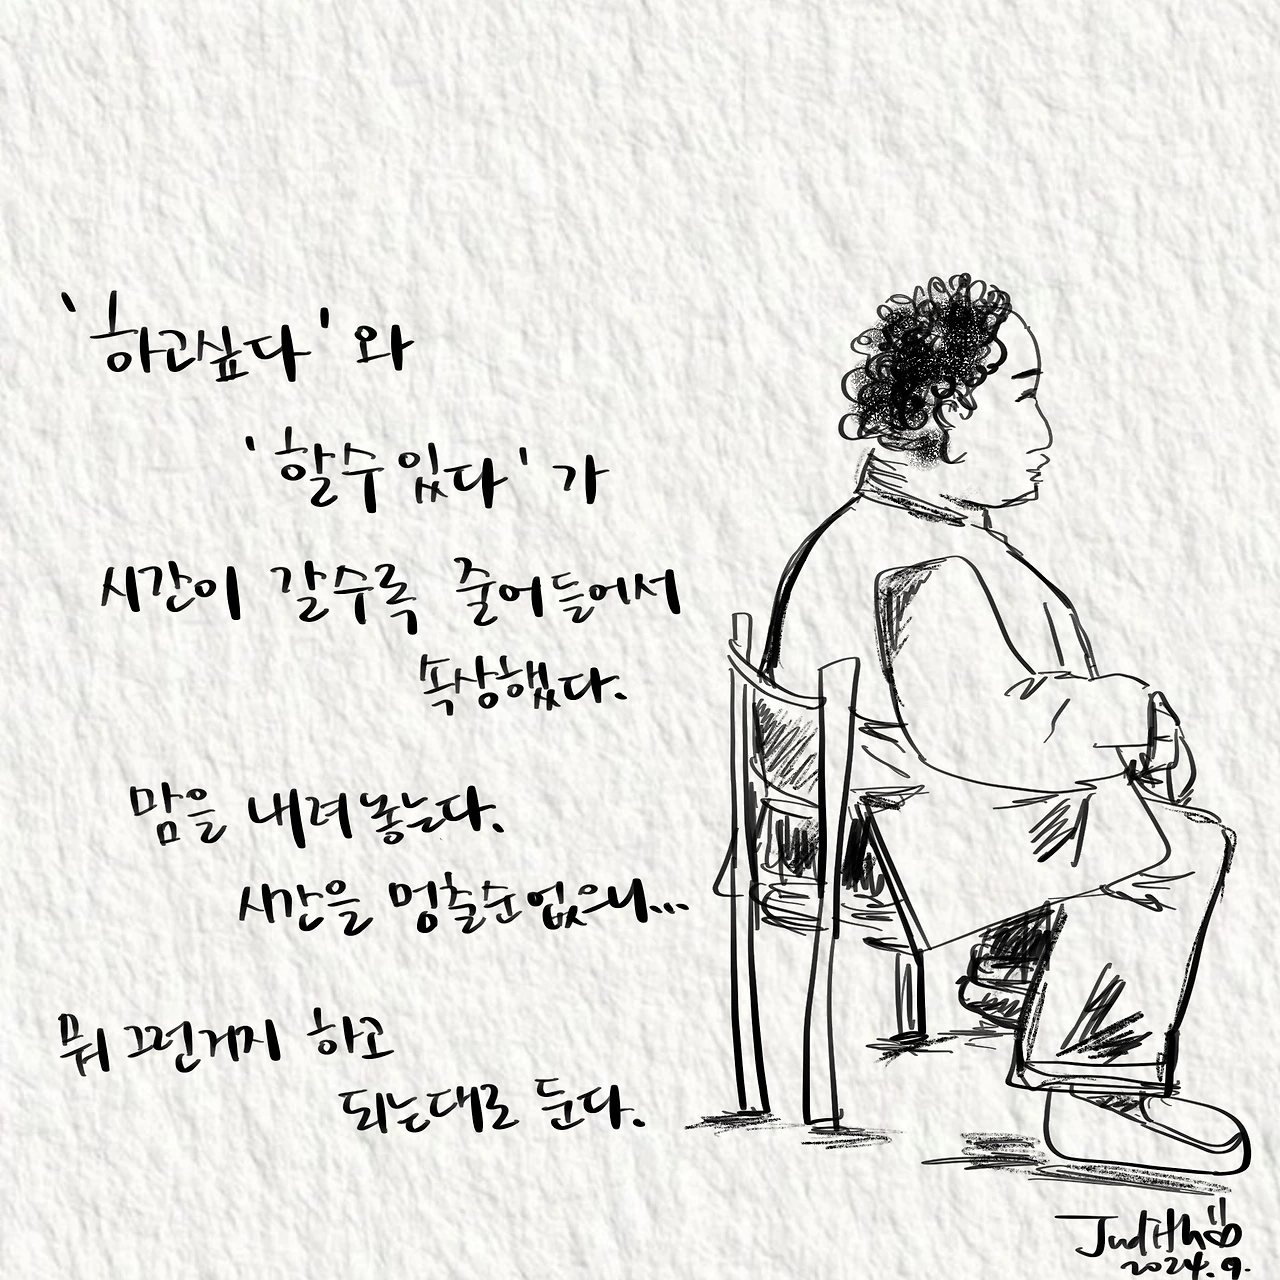 '하고싶다'와
'할수있다'가
시간이 갈수록 줄어들어서
속상했다.
맘을 내려놓는다.
시간을 멈출순없으니...
뭐 그런거지 하고
되는대로 둔다.
Judith
2024.9.